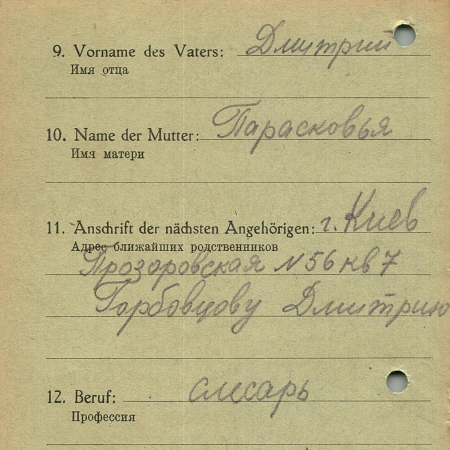 9. Vorname des Vaters: Дмитрий
Имя отца
10. Name der Mutter: Парасковья
Имя матери
11. Anschrift der nächsten Angehörigen: г. Киев
Адрес ближайших родственников
Прозоровская N 56 кв 7
Горбовцову Дмитрию
12. Beruf: слесарь
Профессия